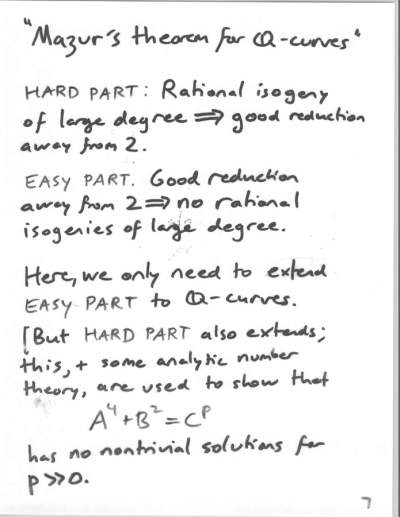 "Mazur's theorem for Q-curves"
HARD PART: Rational isogeny
of large degree ⟹ good reduction
away from 2.
EASY PART. Good reduction
away from 2 ⟹ no rational
isogenies of large degree.
Here, we only need to extend
EASY PART to Q-curves.
[But HARD PART also extends;
this, + some analytic number
theory, are used to show that
A⁴+B²=Cᵖ
has no nontrivial solutions for
p>>0.
7